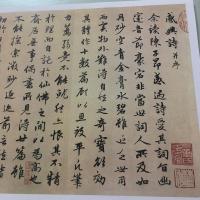 感興詩 并序
余讀陳子昂感遇詩愛其詞旨幽
邃音節豪宕非當世詞人所及如
丹砂空青金膏水碧雖近乏世用
而實物外難得自然之奇寶欲效
其體作十數篇顧以思致平凡筆
力萎弱竟不能就然亦恨其不精
於理而自託於仙佛之間以為高也
齋居無事偶書所見得二十篇雖
不能探索微眇追迹前言